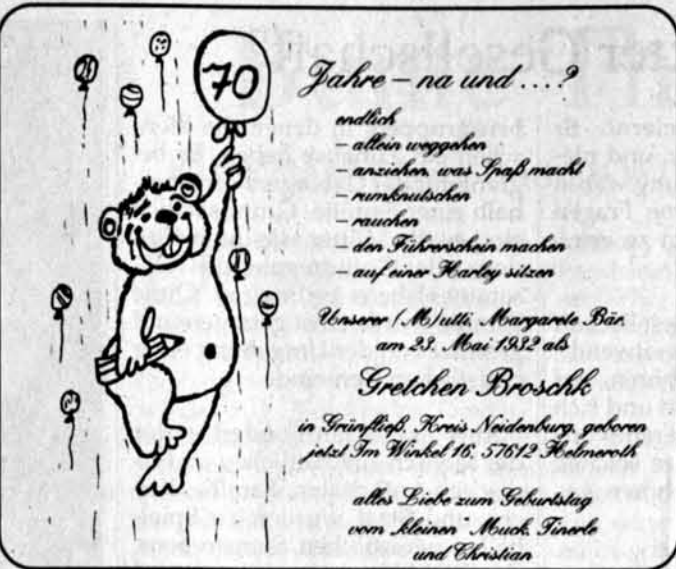 70
Jahre – na und ....?
endlich
– allein weggehen
– anziehen, was Spaß macht
– rumknutschen
– rauchen
– den Führerschein machen
– auf einer Harley sitzen
Unserer (M)utti, Margarete Bär,
am 23. Mai 1932 als
Gretchen Broschk
in Grünfließ, Kreis Neidenburg, geboren
jetzt Im Winkel 16, 57612 Helmeroth
alles Liebe zum Geburtstag
vom kleinen Muck, Tinerle
und Christian